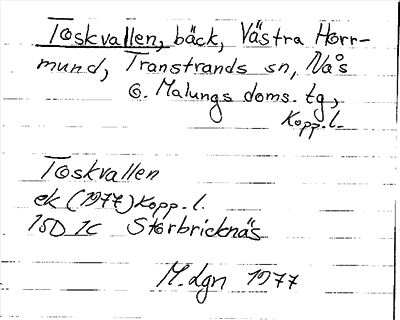 Toskvallen, bäck, Västra Horr-
mund, Transtrands sn, Nås
o. Malungs doms. tg,
Kopp.l.
Toskvallen
ek (1977) Kopp.l.
15D 1c Storbricknäs
M.Lgn 1977